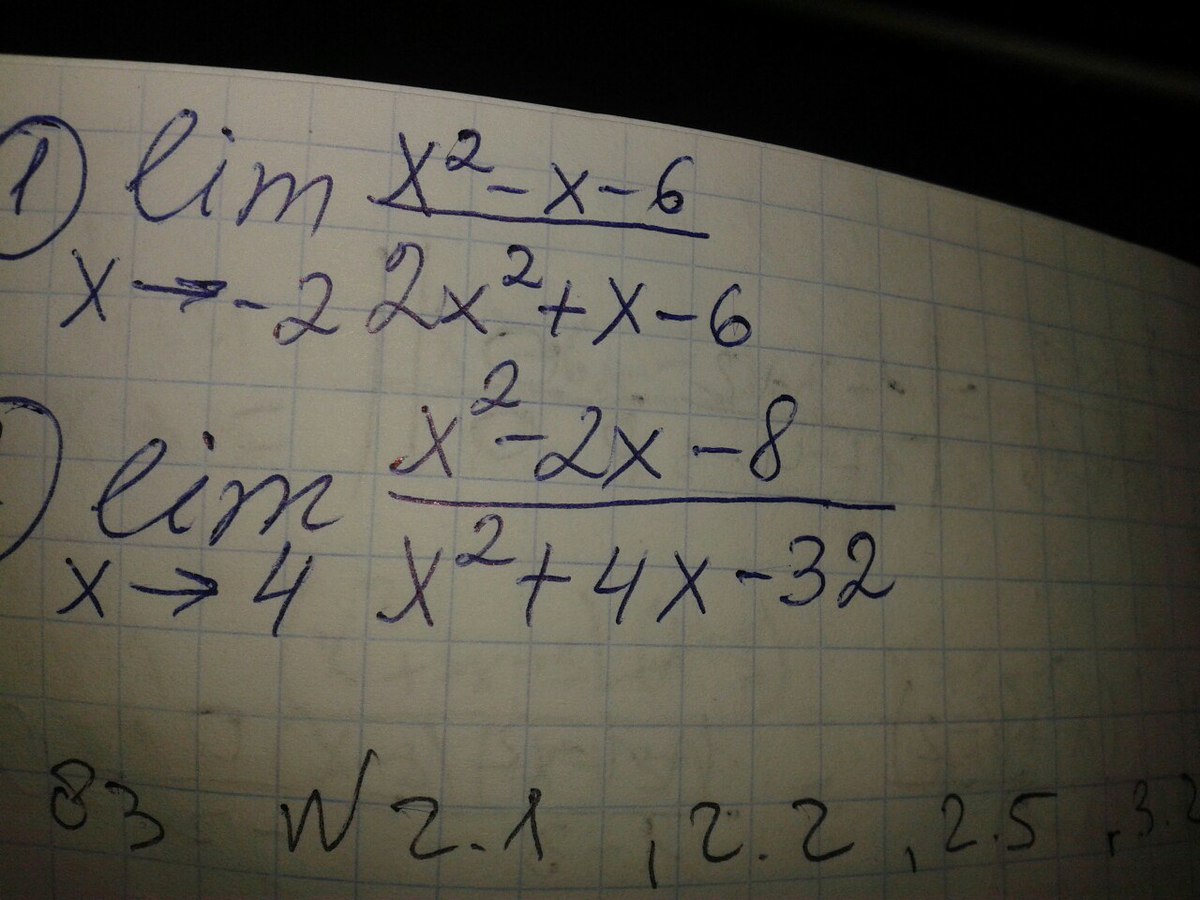 ① lim x² - x - 6
x → -2 2x² + x - 6
lim x² - 2x - 8
x → 4 x² + 4x - 32
83 N 2.1 , 2.2 , 2.5 , 3.2